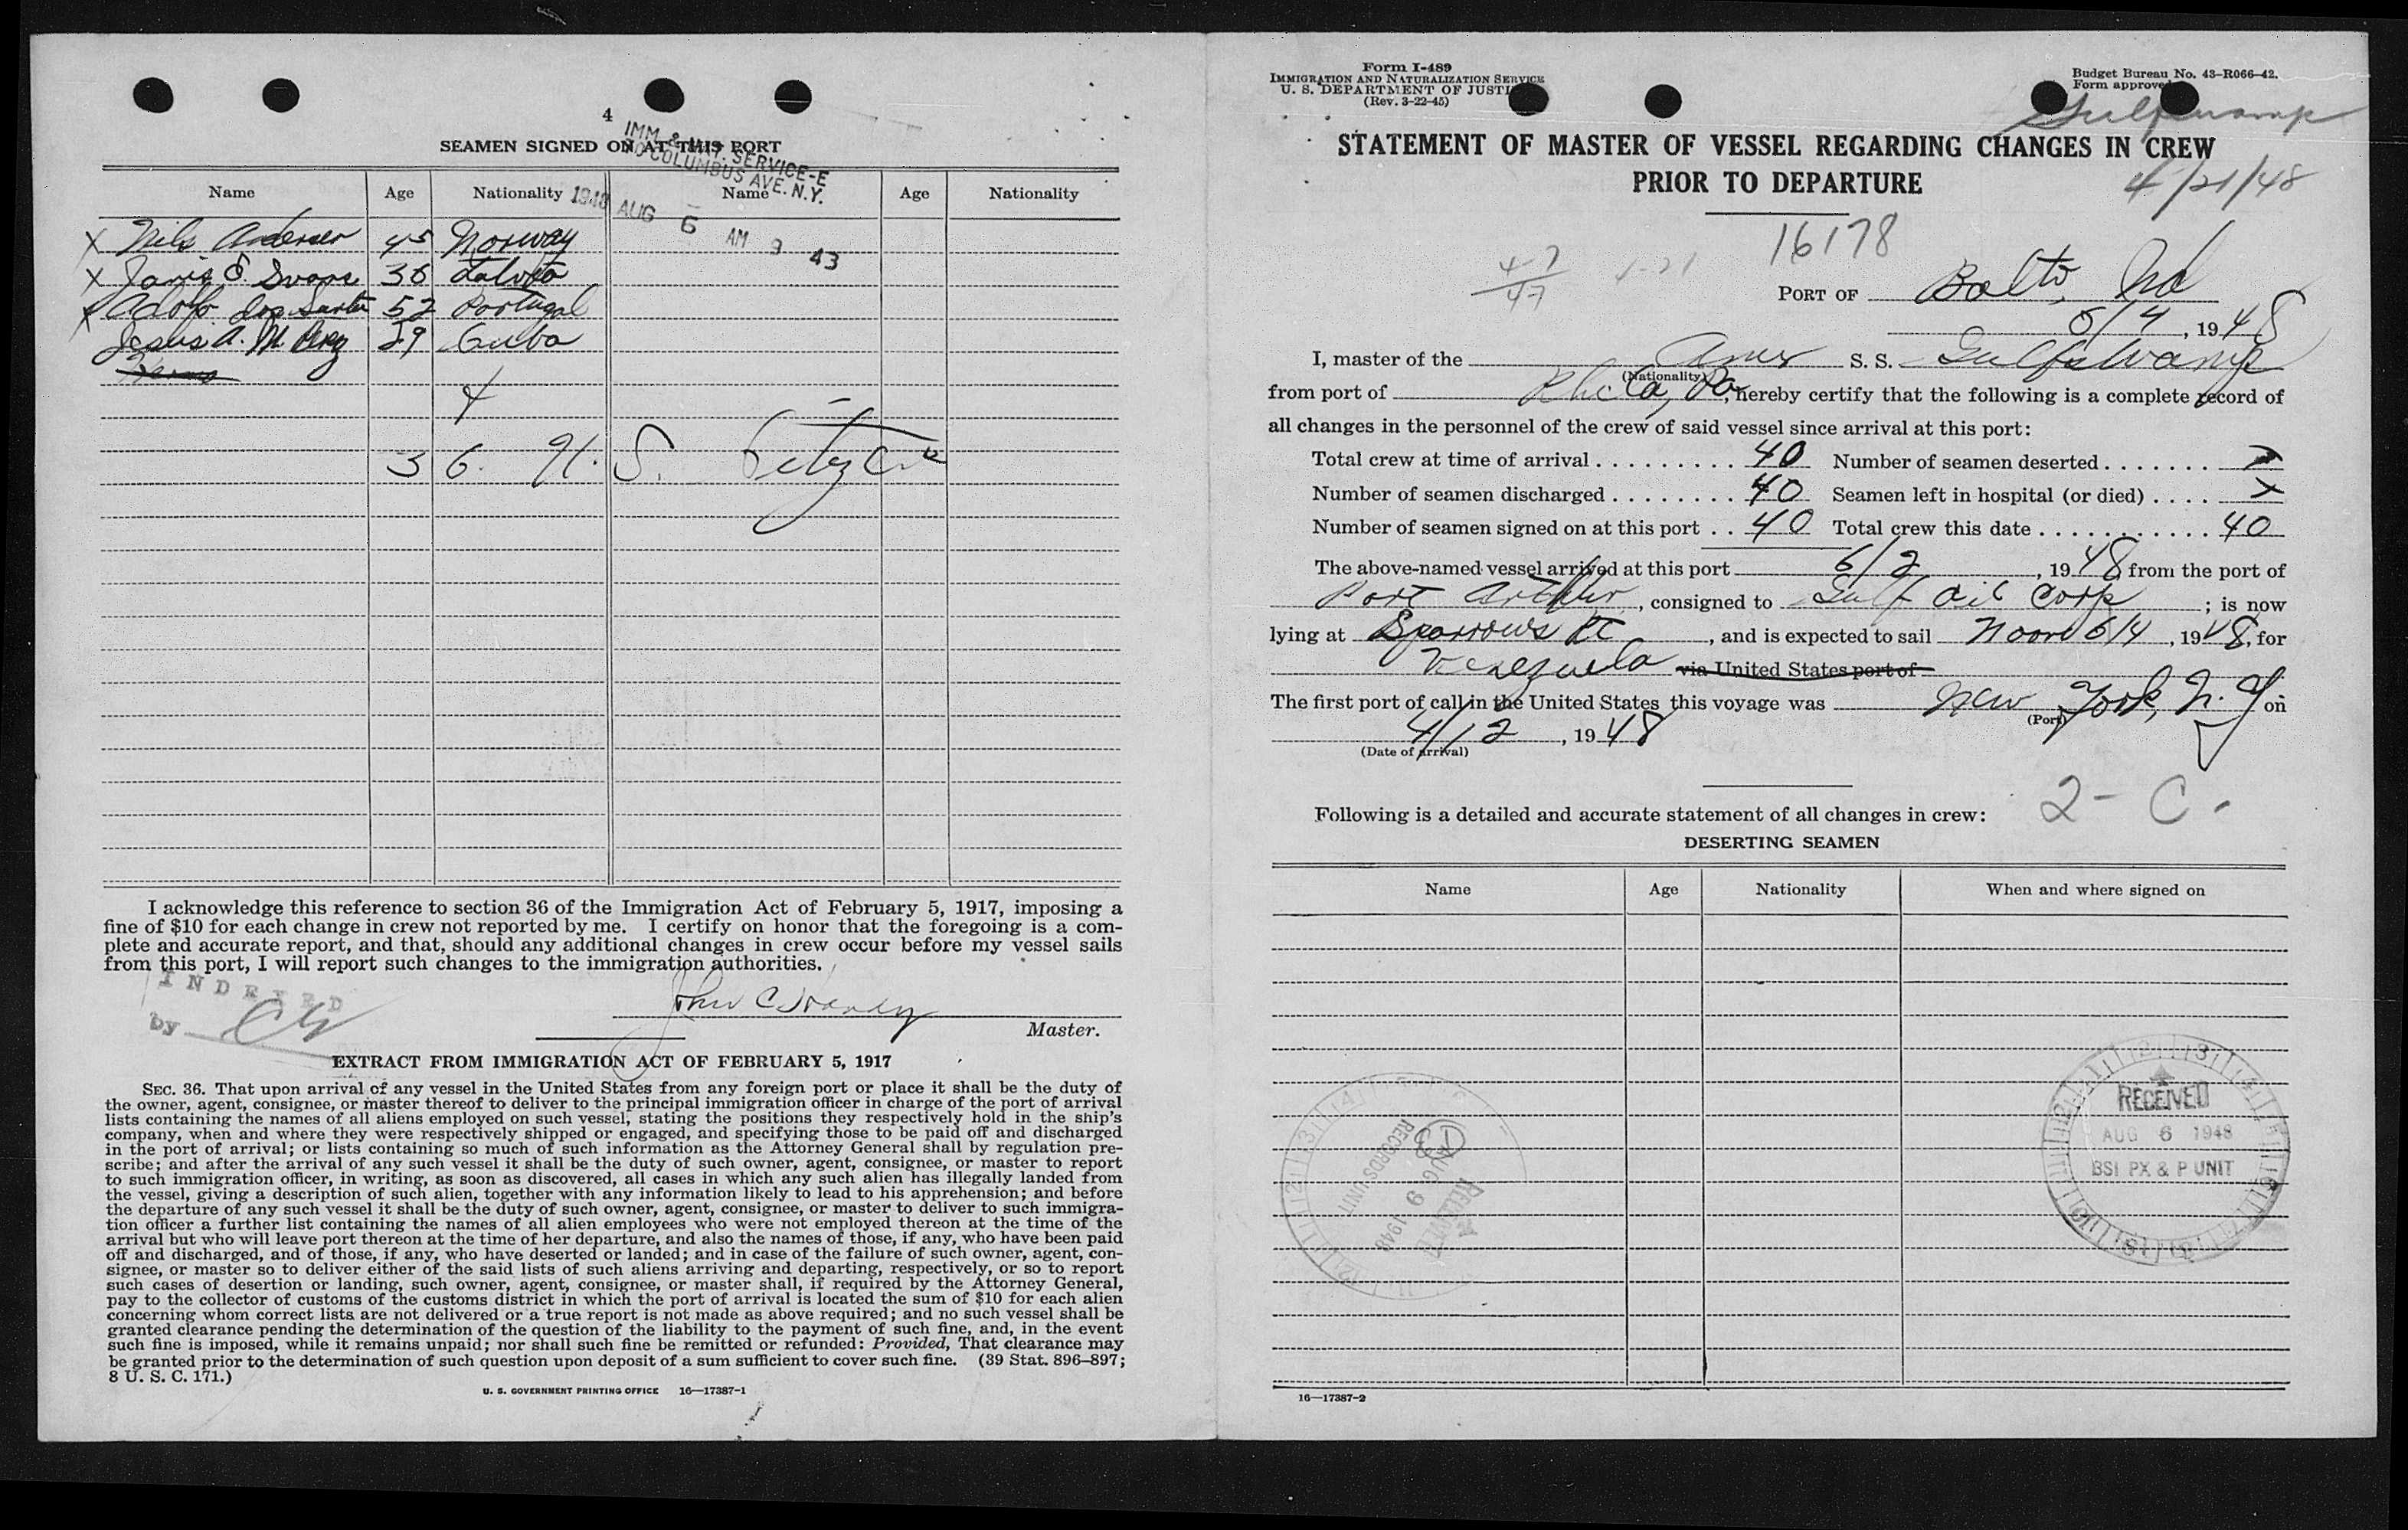 4
SEAMEN SIGNED ON AT THIS PORT
IMM. & NAT. SERVICE-E
70 COLUMBUS AVE. N.Y.
1948 AUG 6 AM 9 43
Name Age Nationality Name Age Nationality
X Nils Andersen 45 Norway
X Janis E. 36 Latvia
X Adolfo dos 52 Portugal
Jesus A. M. 29 Cuba
4
36 U. S. Citizens
I acknowledge this reference to section 36 of the Immigration Act of February 5, 1917, imposing a
fine of $10 for each change in crew not reported by me. I certify on honor that the foregoing is a com-
plete and accurate report, and that, should any additional changes in crew occur before my vessel sails
from this port, I will report such changes to the immigration authorities.
INDEXED
by
John C.
Master.
EXTRACT FROM IMMIGRATION ACT OF FEBRUARY 5, 1917
SEC. 36. That upon arrival of any vessel in the United States from any foreign port or place it shall be the duty of
the owner, agent, consignee, or master thereof to deliver to the principal immigration officer in charge of the port of arrival
lists containing the names of all aliens employed on such vessel, stating the positions they respectively hold in the ship's
company, when and where they were respectively shipped or engaged, and specifying those to be paid off and discharged
in the port of arrival; or lists containing so much of such information as the Attorney General shall by regulation pre-
scribe; and after the arrival of any such vessel it shall be the duty of such owner, agent, consignee, or master to report
to such immigration officer, in writing, as soon as discovered, all cases in which any such alien has illegally landed from
the vessel, giving a description of such alien, together with any information likely to lead to his apprehension; and before
the departure of any such vessel it shall be the duty of such owner, agent, consignee, or master to deliver to such immigra-
tion officer a further list containing the names of all alien employees who were not employed thereon at the time of the
arrival but who will leave port thereon at the time of her departure, and also the names of those, if any, who have been paid
off and discharged, and of those, if any, who have deserted or landed; and in case of the failure of such owner, agent, con-
signee, or master so to deliver either of the said lists of such aliens arriving and departing, respectively, or so to report
such cases of desertion or landing, such owner, agent, consignee, or master shall, if required by the Attorney General,
pay to the collector of customs of the customs district in which the port of arrival is located the sum of $10 for each alien
concerning whom correct lists are not delivered or a true report is not made as above required; and no such vessel shall be
granted clearance pending the determination of the question of the liability to the payment of such fine, and, in the event
such fine is imposed, while it remains unpaid; nor shall such fine be remitted or refunded: Provided, That clearance may
be granted prior to the determination of such question upon deposit of a sum sufficient to cover such fine. (39 Stat. 896–897;
8 U. S. C. 171.)
U. S. GOVERNMENT PRINTING OFFICE 16—17387-1
Form I-489
IMMIGRATION AND NATURALIZATION SERVICE
U. S. DEPARTMENT OF JUSTICE
(Rev. 3-22-45)
Budget Bureau No. 43-R066-42.
Form approved
Gulfswamp
STATEMENT OF MASTER OF VESSEL REGARDING CHANGES IN CREW
PRIOR TO DEPARTURE
4/21/48
16178
4-7
47
4-21
PORT OF Balto, Md
6/4, 1948
I, master of the Amer S. S. Gulfswamp
(Nationality)
from port of Phila, Pa, hereby certify that the following is a complete record of
all changes in the personnel of the crew of said vessel since arrival at this port:
Total crew at time of arrival . . . . . . . . . . 40 Number of seamen deserted . . . . . . .
Number of seamen discharged . . . . . . . . 40 Seamen left in hospital (or died) . . . . X
Number of seamen signed on at this port . . 40 Total crew this date . . . . . . . . . . . 40
The above-named vessel arrived at this port 6/2, 1948 from the port of
Port Arthur, consigned to Gulf Oil Corp; is now
lying at Sparrows Pt, and is expected to sail Noon 6/4, 1948, for
Venezuela via United States port of
The first port of call in the United States this voyage was New York, N. Y. on
(Port)
4/12, 1948
(Date of arrival)
2 - C -
Following is a detailed and accurate statement of all changes in crew:
DESERTING SEAMEN
Name Age Nationality When and where signed on
RECEIVED
AUG 9 1948
RECORDS UNIT
RECEIVED
AUG 6 1948
BSI PX & P UNIT
16—17387-2